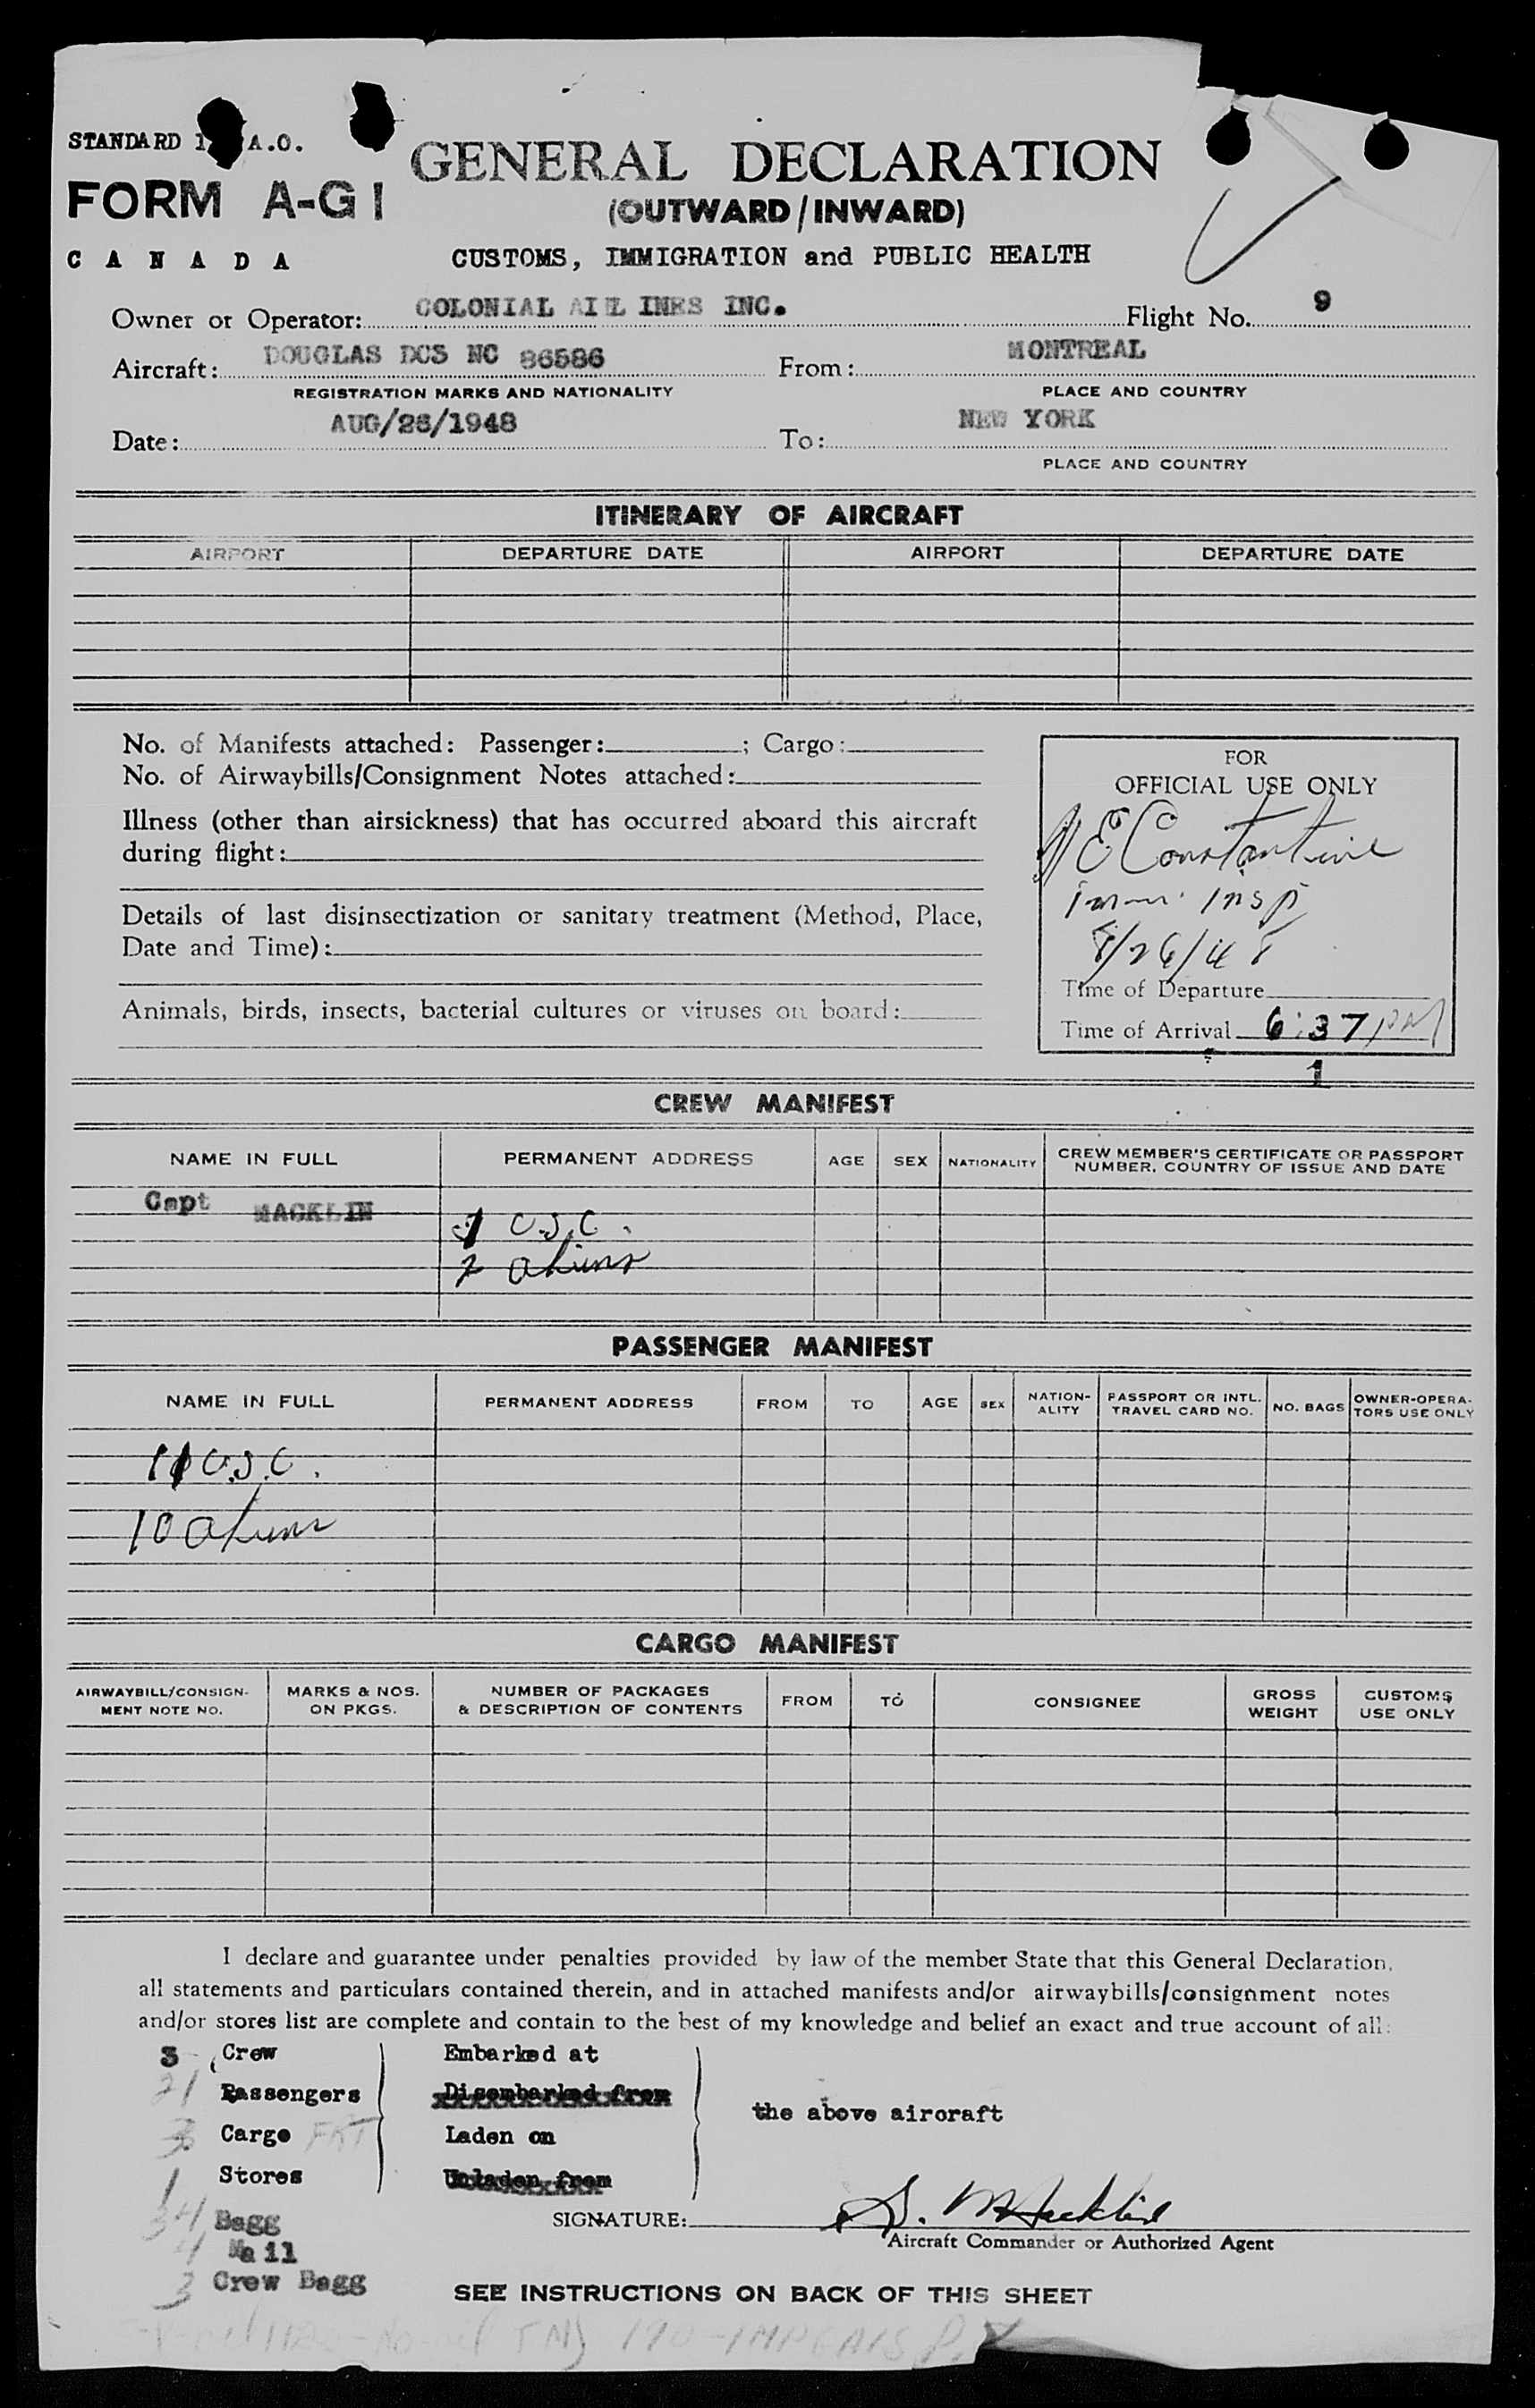 STANDARD I A.O.
FORM A-G1
CANADA
GENERAL DECLARATION
(OUTWARD/INWARD)
CUSTOMS, IMMIGRATION and PUBLIC HEALTH
Owner or Operator: COLONIAL AIRLINES INC. Flight No. 9
Aircraft: DOUGLAS DC3 NC 86586 From: MONTREAL
REGISTRATION MARKS AND NATIONALITY PLACE AND COUNTRY
Date: AUG/26/1948 To: NEW YORK
PLACE AND COUNTRY
ITINERARY OF AIRCRAFT
AIRPORT DEPARTURE DATE AIRPORT DEPARTURE DATE
No. of Manifests attached: Passenger: ; Cargo:
No. of Airwaybills/Consignment Notes attached:
Illness (other than airsickness) that has occurred aboard this aircraft
during flight:
Details of last disinsectization or sanitary treatment (Method, Place,
Date and Time):
Animals, birds, insects, bacterial cultures or viruses on board:
FOR
OFFICIAL USE ONLY
E Constantine
Imm. Insp
8/26/48
Time of Departure
Time of Arrival 6:37 PM
1
CREW MANIFEST
NAME IN FULL PERMANENT ADDRESS AGE SEX NATIONALITY CREW MEMBER'S CERTIFICATE OR PASSPORT
NUMBER, COUNTRY OF ISSUE AND DATE
Capt MACKLIN
1 U.S.C.
2 aliens
PASSENGER MANIFEST
NAME IN FULL PERMANENT ADDRESS FROM TO AGE SEX NATION-
ALITY PASSPORT OR INTL.
TRAVEL CARD NO. NO. BAGS OWNER-OPERA-
TORS USE ONLY
11 U.S.C.
10 aliens
CARGO MANIFEST
AIRWAYBILL/CONSIGN-
MENT NOTE NO. MARKS & NOS.
ON PKGS. NUMBER OF PACKAGES
& DESCRIPTION OF CONTENTS FROM TO CONSIGNEE GROSS
WEIGHT CUSTOMS
USE ONLY
I declare and guarantee under penalties provided by law of the member State that this General Declaration,
all statements and particulars contained therein, and in attached manifests and/or airwaybills/consignment notes
and/or stores list are complete and contain to the best of my knowledge and belief an exact and true account of all:
3 Crew Embarked at
21 Passengers Disembarked from
the above aircraft
Cargo FRT Laden on
1 Stores Unladen from
34 Bagg
4 Mail
3 Crew Bagg
SIGNATURE: S. Macklin
Aircraft Commander or Authorized Agent
SEE INSTRUCTIONS ON BACK OF THIS SHEET